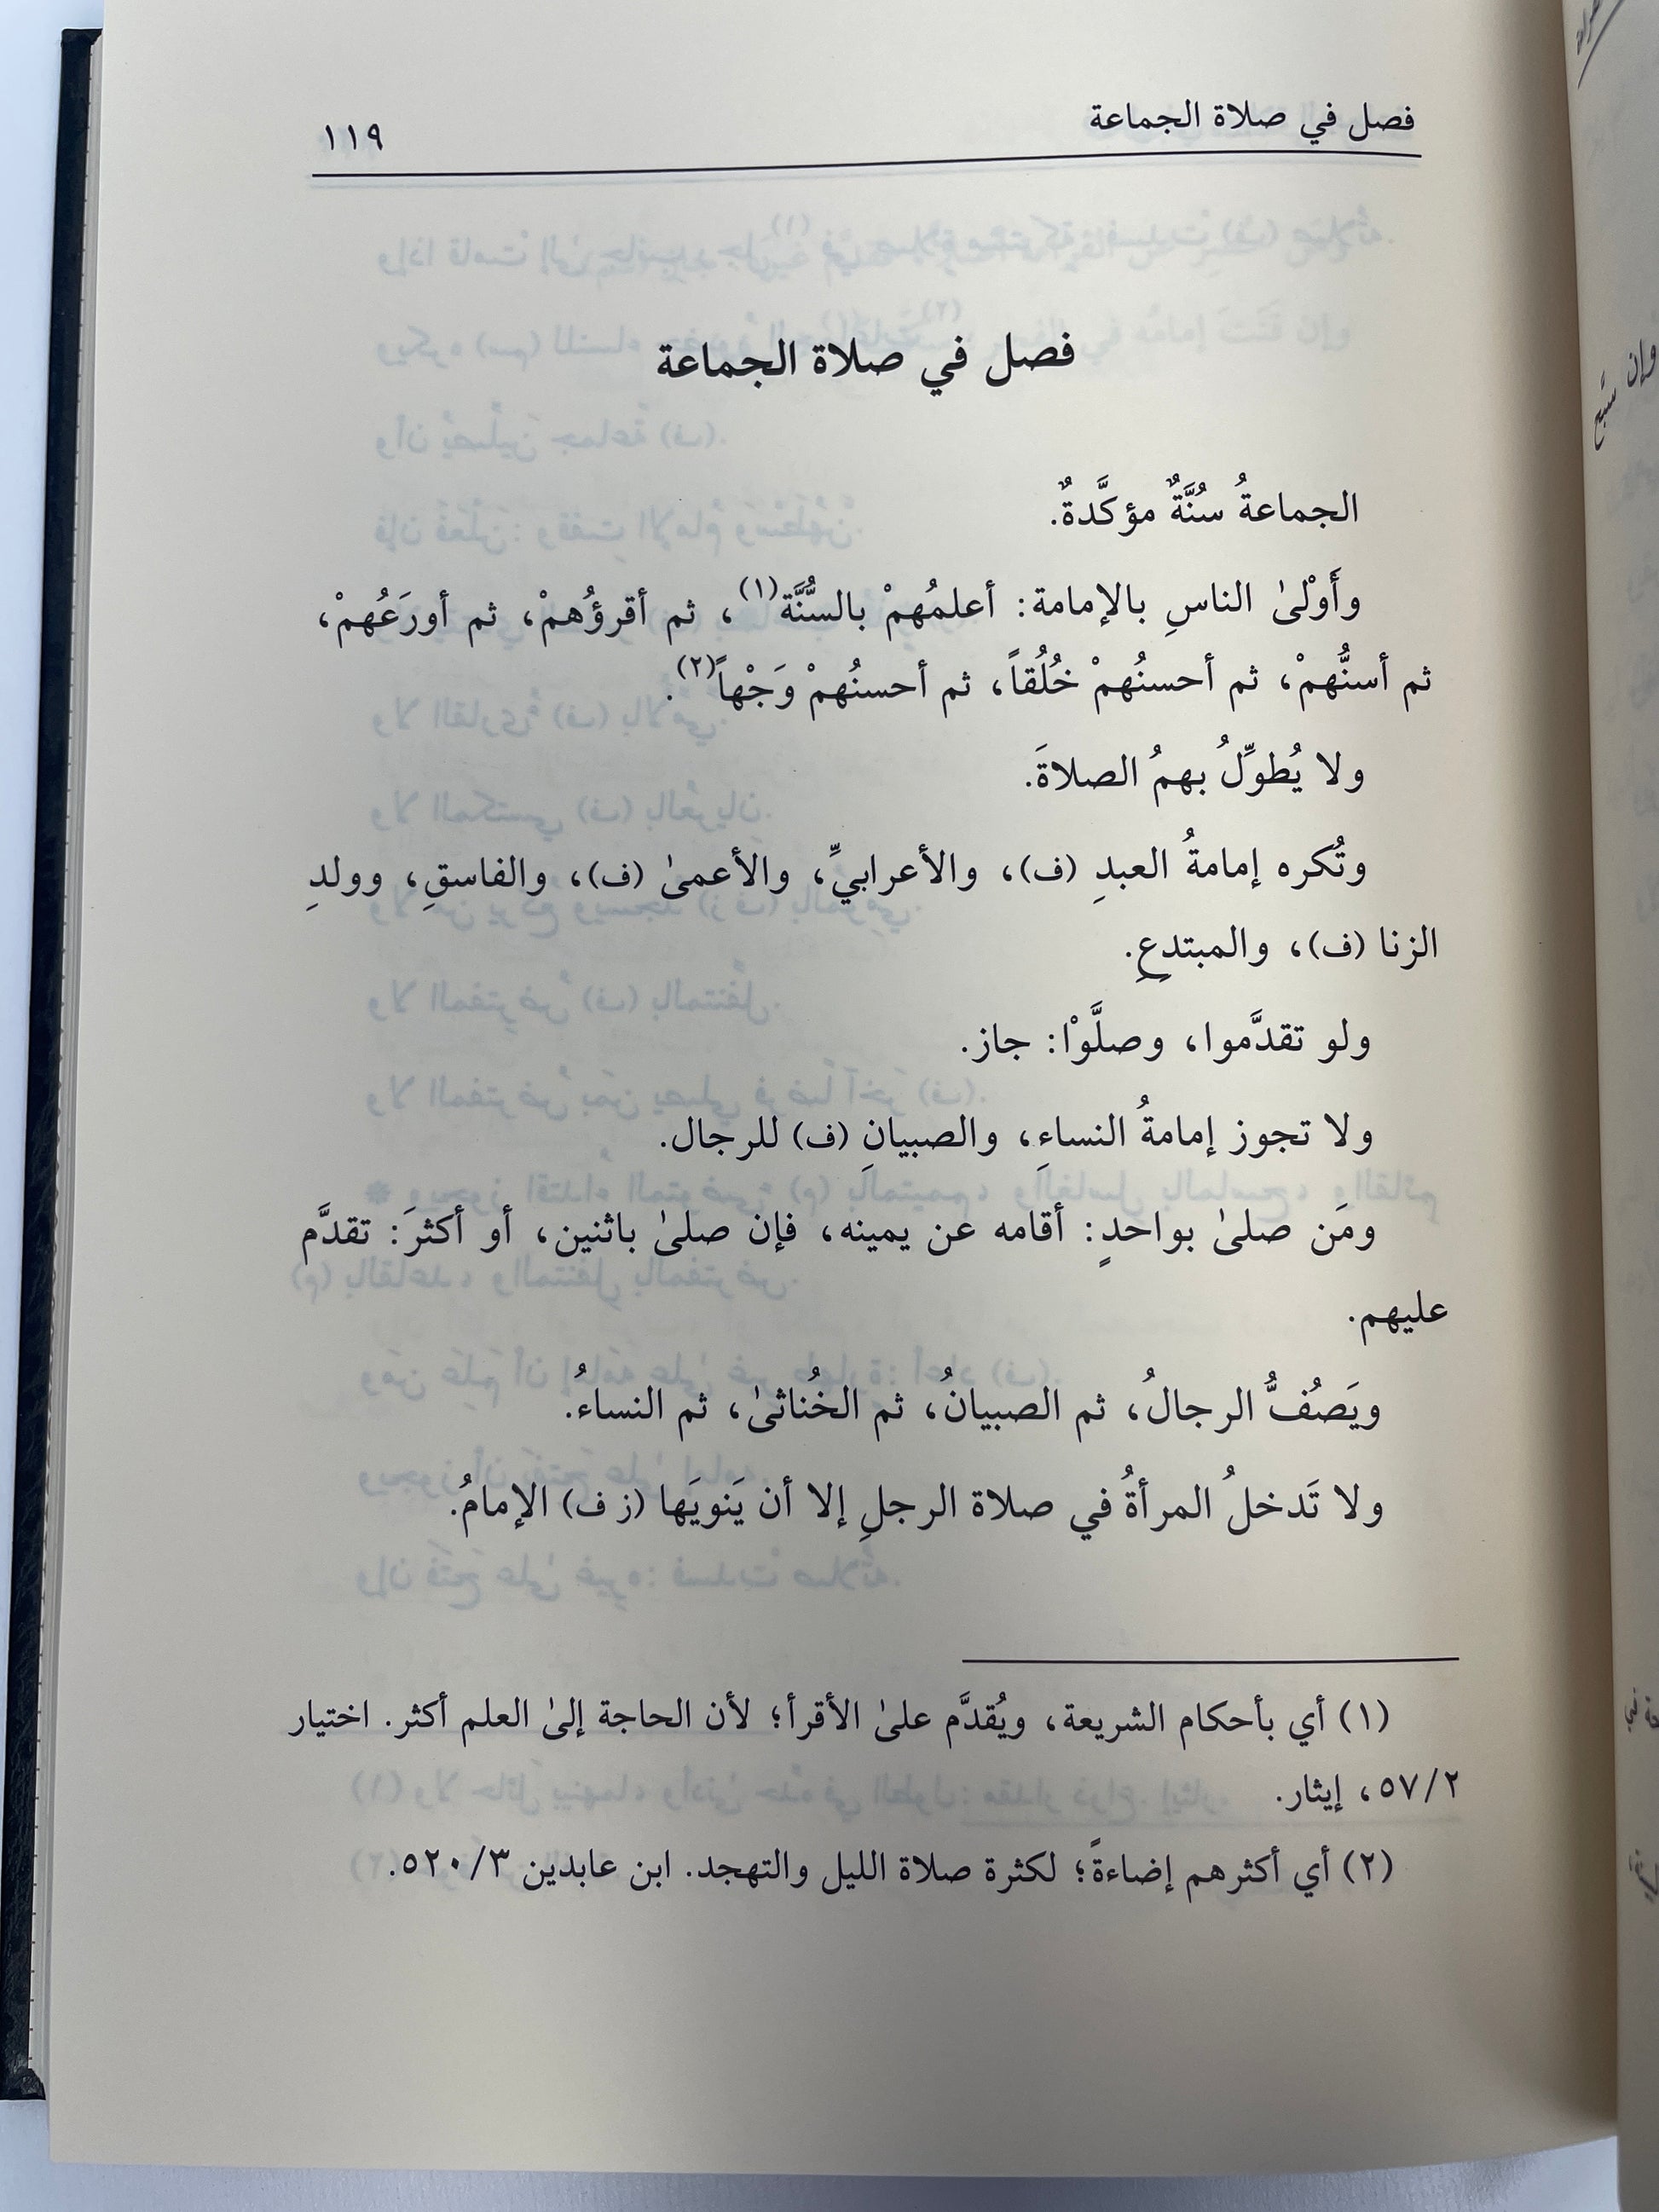 فصل في صلاة الجماعة ١١٩
فصل في صلاة الجماعة
الجماعةُ سُنَّةٌ مؤكَّدةٌ.
وأَوْلىٰ الناسِ بالإمامة: أعلمُهمْ بالسُّنَّة(١)، ثم أقرؤُهمْ، ثم أورَعُهمْ،
ثم أسنُّهمْ، ثم أحسنُهمْ خُلُقاً، ثم أحسنُهمْ وَجْهاً(٢).
ولا يُطوِّلُ بهمُ الصلاةَ.
وتُكره إمامةُ العبدِ (ف)، والأعرابيِّ، والأعمىٰ (ف)، والفاسقِ، وولدِ
الزنا (ف)، والمبتدعِ.
ولو تقدَّموا، وصلَّوْا: جاز.
ولا تجوز إمامةُ النساءِ، والصبيانِ (ف) للرجال.
ومَن صلىٰ بواحدٍ: أقامه عن يمينه، فإن صلىٰ باثنين، أو أكثرَ: تقدَّم
عليهم.
ويَصُفُّ الرجالُ، ثم الصبيانُ، ثم الخُناثىٰ، ثم النساءُ.
ولا تَدخلُ المرأةُ في صلاة الرجلِ إلا أن يَنويَها (ز ف) الإمامُ.
(١) أي بأحكام الشريعة، ويُقدَّم علىٰ الأقرأ؛ لأن الحاجة إلىٰ العلم أكثر. اختيار
٥٧/٢، إيثار.
(٢) أي أكثرهم إضاءةً؛ لكثرة صلاة الليل والتهجد. ابن عابدين ٥٢٠/٣.
وإن